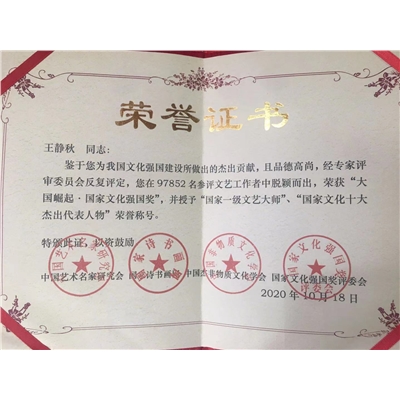 荣誉证书
王静秋 同志:
鉴于您为我国文化强国建设所做出的杰出贡献，且品德高尚，经专家评
审委员会反复评定，您在97852名参评文艺工作者中脱颖而出，荣获“大
国崛起·国家文化强国奖”，并授予“国家一级文艺大师”、“国家文化十大
杰出代表人物”荣誉称号。
特颁此证，以资鼓励
中国艺术名家研究会 国家诗书画 中国杰非物质文化学会 国家文化强国奖评委会
2020年10月18日